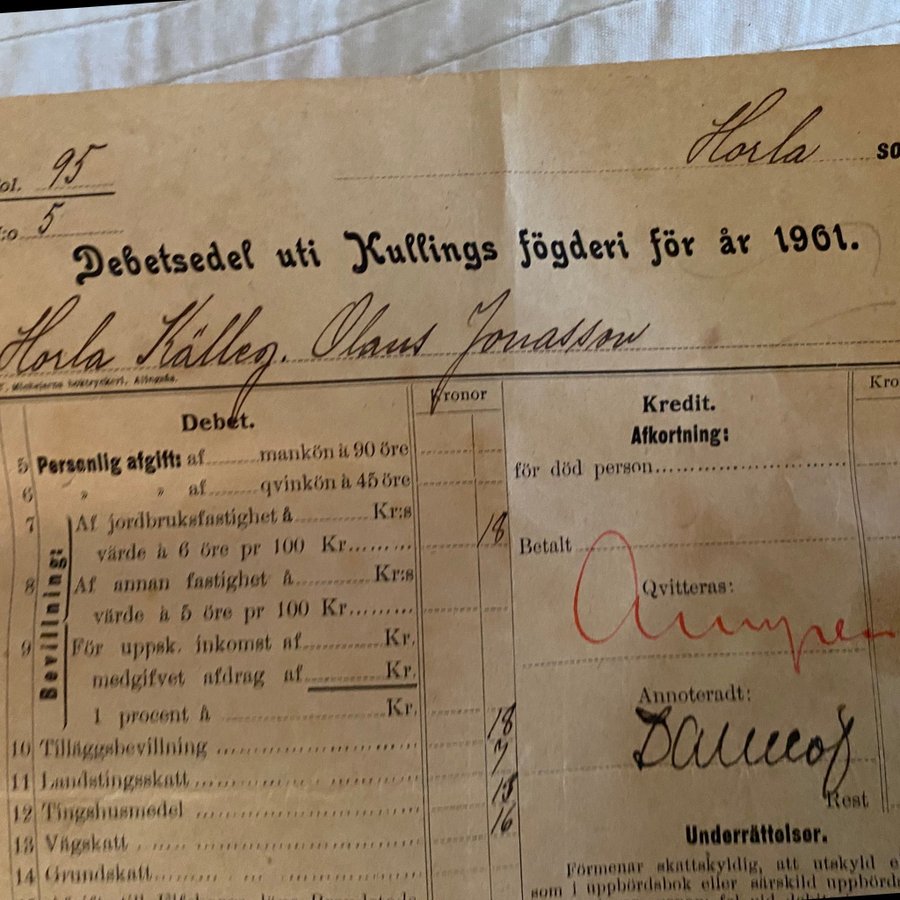 Fol. 95
N:o 5
Horla
Debetsedel uti Kullings fögderi för år 1961.
Horla Källeg. Olaus Jonasson
boktryckeri, Alingsås.
Debet.
Kronor
5 Personlig afgift: af ........ mankön à 90 öre
6 » » af ........ qvinkön à 45 öre
Bevillning:
7 Af jordbruksfastighet å ........ Kr:s
värde à 6 öre pr 100 Kr........ 18
8 Af annan fastighet å ........ Kr:s
värde à 5 öre pr 100 Kr.........
9 För uppsk. inkomst af ........ Kr.
medgifvet afdrag af ........ Kr.
1 procent å ........ Kr.
10 Tilläggsbevillning ........ 18
11 Landstingsskatt ........ 7
12 Tingshusmedel ........ 15
13 Vägskatt ........ 16
14 Grundskatt ........
Kredit.
Kro
Afkortning:
för död person ........
Betalt
Qvitteras:
Annoteradt:
Rest
Underrättelser.
Förmenar skattskyldig, att utskyld
som i uppbördsbok eller särskild uppbörds